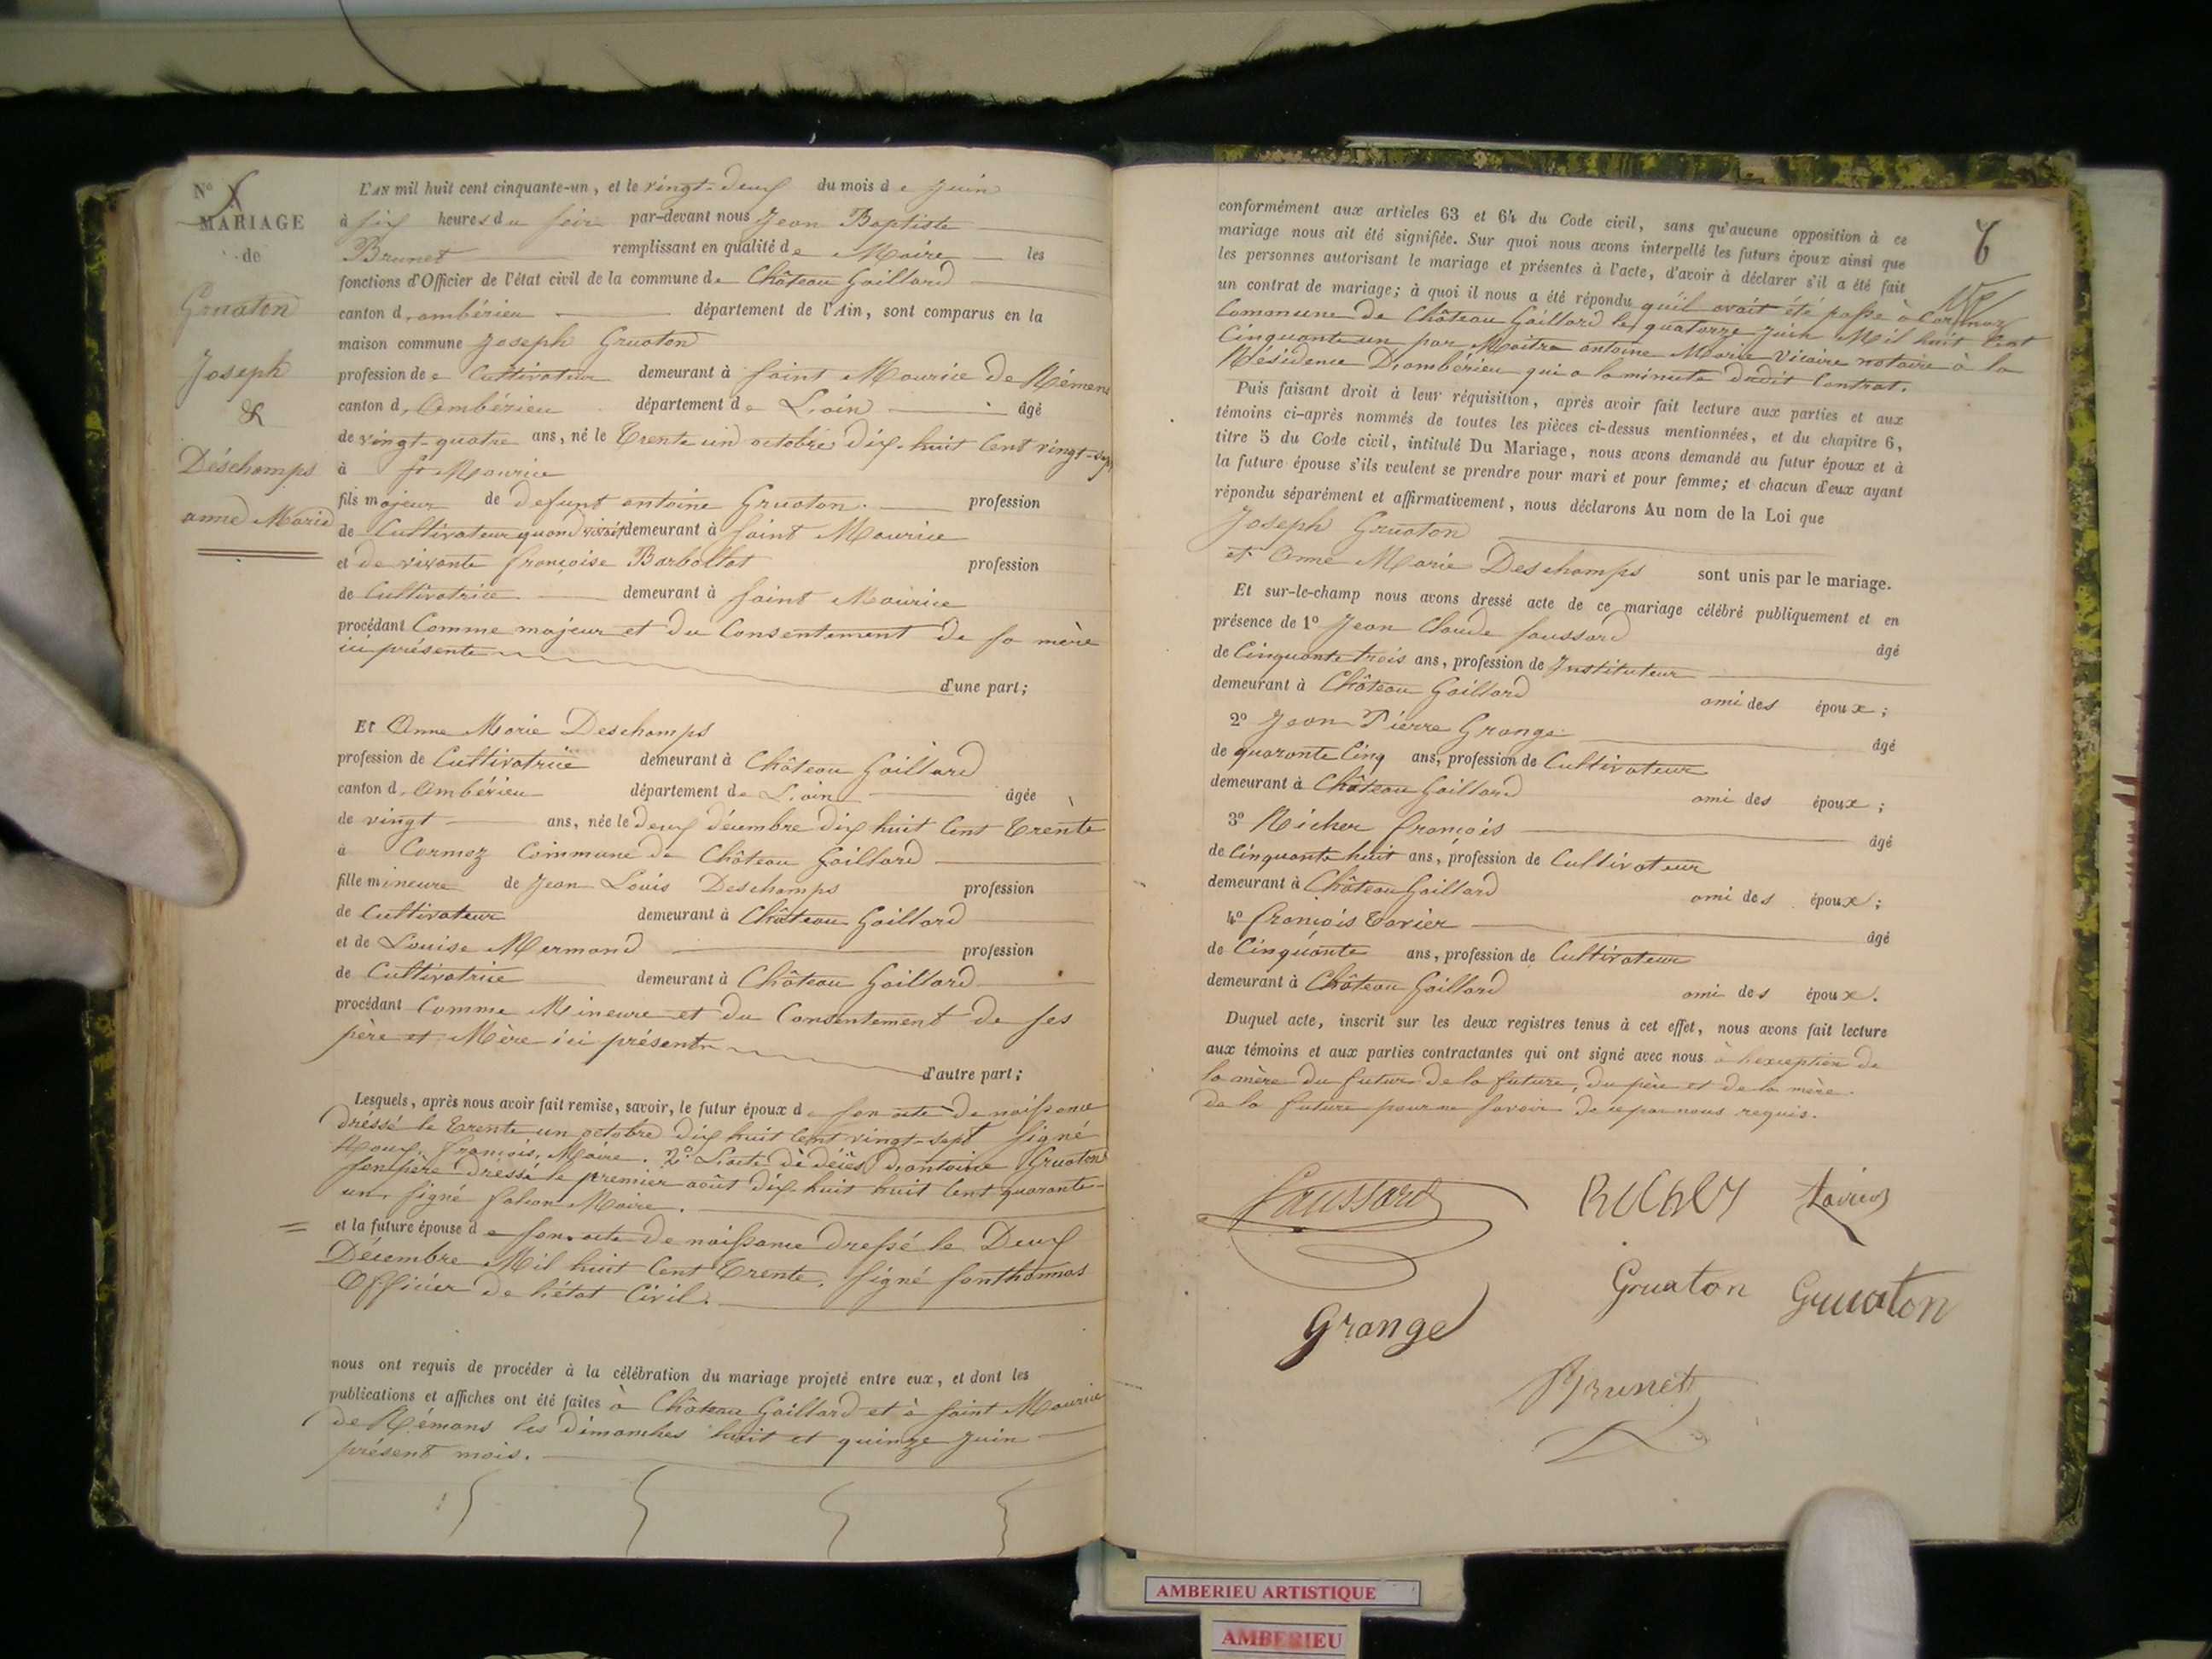 N°
MARIAGE
de
Gruaton
Joseph
&
Déschamps
anne Marie
L'AN mil huit cent cinquante-un, et le vingt-deux du mois de Juin
à six heures du soir par-devant nous Jean Baptiste
Brunet remplissant en qualité de Maire les
fonctions d'Officier de l'état civil de la commune de Château Gaillard
canton d'ambérieu département de l'Ain, sont comparus en la
maison commune Joseph Gruaton
profession de Cultivateur demeurant à saint Maurice de Rémens
canton d'ambérieu département de L'ain âgé
de vingt-quatre ans, né le Trente und octobre dix-huit Cent vingt-sept
à st Maurice
fils majeur de defunt antoine Gruaton profession
de Cultivateur quand vivait demeurant à saint Maurice
et de vivante françoise Barbollat profession
de Cultivatrice demeurant à saint Maurice
procédant Comme majeur et du Consentement de sa mère
ici présente
d'une part;
Et Anne Marie Deschamps
profession de Cultivatrice demeurant à Château Gaillard
canton d'ambérieu département de L'ain âgée
de vingt ans, née le Deux décembre dix huit Cent Trente
à Cormoz Commune de Château Gaillard
fille mineure de Jean Louis Deschamps profession
de Cultivateur demeurant à Château Gaillard
et de Louise Mermand profession
de Cultivatrice demeurant à Château Gaillard
procédant Comme Mineure et du Consentement de ses
père et Mère ici présents
d'autre part;
Lesquels, après nous avoir fait remise, savoir, le futur époux de son acte de naissance
dréssé le Trente un octobre dix huit Cent vingt-sept signé
françois, Maire. 2° L'acte de décès D'antoine Gruaton
son père dressé le premier août dix-huit huit Cent quarante-
un, signé Maire.
= et la future épouse de son acte de naissance dressé le Deux
Décembre Mil huit Cent Trente, signé fonthannas
Officier de l'état Civil.
nous ont requis de procéder à la célébration du mariage projeté entre eux, et dont les
publications et affiches ont été faites à Château Gaillard et à saint Maurice
de Rémans les dimanches huit et quinze Juin
présent mois.
6
conformément aux articles 63 et 64 du Code civil, sans qu'aucune opposition à ce
mariage nous ait été signifiée. Sur quoi nous avons interpellé les futurs époux ainsi que
les personnes autorisant le mariage et présentes à l'acte, d'avoir à déclarer s'il a été fait
un contrat de mariage; à quoi il nous a été répondu qu'il avait été passé à Cormoz
Commune de Château Gaillard le quatorze Juin Mil huit Cent
Cinquante un par Maitre antoine Marie Vicaire notaire à la
Résidence D'ambérieu qui a la minute dudit Contrat.
Puis faisant droit à leur réquisition, après avoir fait lecture aux parties et aux
témoins ci-après nommés de toutes les pièces ci-dessus mentionnées, et du chapitre 6,
titre 5 du Code civil, intitulé Du Mariage, nous avons demandé au futur époux et à
la future épouse s'ils veulent se prendre pour mari et pour femme; et chacun d'eux ayant
répondu séparément et affirmativement, nous déclarons Au nom de la Loi que
Joseph Gruaton
et Anne Marie Deschamps sont unis par le mariage.
Et sur-le-champ nous avons dressé acte de ce mariage célébré publiquement et en
présence de 1° Jean Claude faussard âgé
de Cinquante trois ans, profession de Instituteur
demeurant à Château Gaillard ami des époux;
2° Jean Pierre Grange âgé
de quarante Cinq ans, profession de Cultivateur
demeurant à Château Gaillard ami des époux;
3° Richer françois âgé
de Cinquante huit ans, profession de Cultivateur
demeurant à Château Gaillard ami des époux;
4° françois Tavier âgé
de Cinquante ans, profession de Cultivateur
demeurant à Château Gaillard ami des époux.
Duquel acte, inscrit sur les deux registres tenus à cet effet, nous avons fait lecture
aux témoins et aux parties contractantes qui ont signé avec nous à L'exception de
la mère du futur de la future, du père et de la mère
de la future pour ne savoir de ce par nous requis.
faussard Richer Tavier
Gruaton Gruaton
Grange
Brunet
AMBERIEU ARTISTIQUE
AMBERIEU